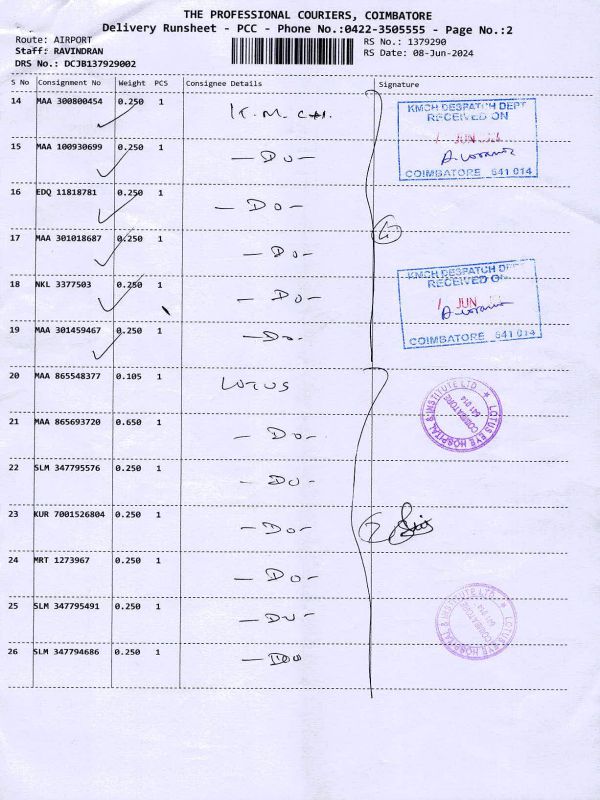 THE PROFESSIONAL COURIERS, COIMBATORE
Delivery Runsheet - PCC - Phone No.:0422-3505555 - Page No.:2
Route: AIRPORT
RS No.: 1379290
Staff: RAVINDRAN
RS Date: 08-Jun-2024
DRS No.: DCJB137929002
S No Consignment No Weight PCS Consignee Details Signature
14 MAA 300800454 0.250 1 K.M.C.H.
KMCH DESPATCH DEPT
RECEIVED ON
JUN
COIMBATORE 641 014
15 MAA 100930699 0.250 1 - Do -
16 EDQ 11818781 0.250 1 - Do -
17 MAA 301018687 0.250 1 - Do -
18 NKL 3377503 0.250 1 - Do -
KMCH DESPATCH DEPT
RECEIVED ON
JUN
COIMBATORE 641 014
19 MAA 301459467 0.250 1 - Do -
20 MAA 865548377 0.105 1 LOTUS
LOTUS EYE HOSPITAL & INSTITUTE LTD
COIMBATORE
641 014
21 MAA 865693720 0.650 1 - Do -
22 SLM 347795576 0.250 1 - Do -
23 KUR 7001526804 0.250 1 - Do -
7
24 MRT 1273967 0.250 1 - Do -
25 SLM 347795491 0.250 1 - Do -
LOTUS EYE HOSPITAL & INSTITUTE LTD
COIMBATORE
641 014
26 SLM 347794686 0.250 1 - Do